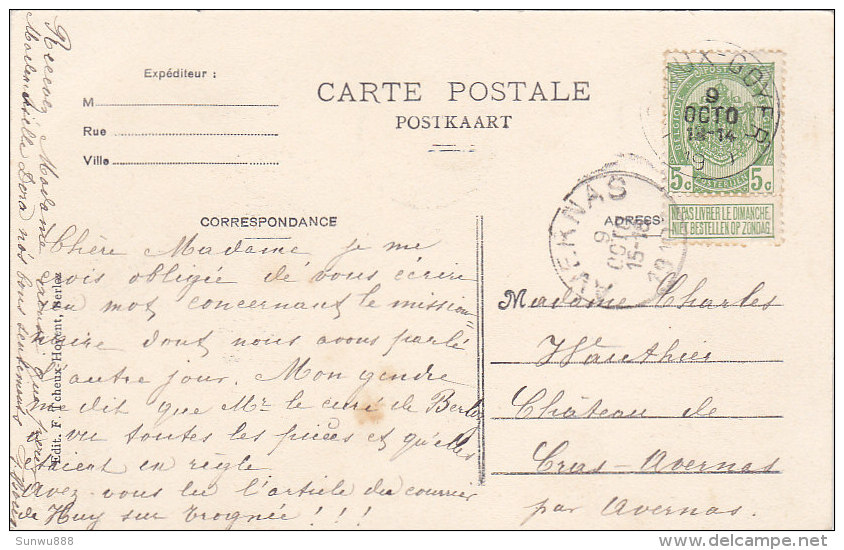 Expéditeur :
M
Rue
Ville
CARTE POSTALE
POSTKAART
CORRESPONDANCE
ADRESS
BELGIQUE
POSTES
POSTERIJEN
5c 5c
NE PAS LIVRER LE DIMANCHE
NIET BESTELLEN OP ZONDAG
9
OCTO
13-14
AVERNAS
9
OCTO
15-16
Chère Madame je me
vois obligée de vous écrire
un mot concernant le mission=
naire dont nous avons parlé
l'autre jour. Mon gendre
me dit que Mr le curé de Berloz
a vu toutes les pièces et qu'elles
étaient en règle
Avez vous lu l'article du courrier
de Huy sur Trognée!!!
Recevez Madame
Mademoiselle Dora nos bons sentiments
Edit. F. Hoyent, Berloz
Madame Charles
Wauthier
Château de
Cras-Avernas
par Avernas.
Sunwu888
delcampe.net